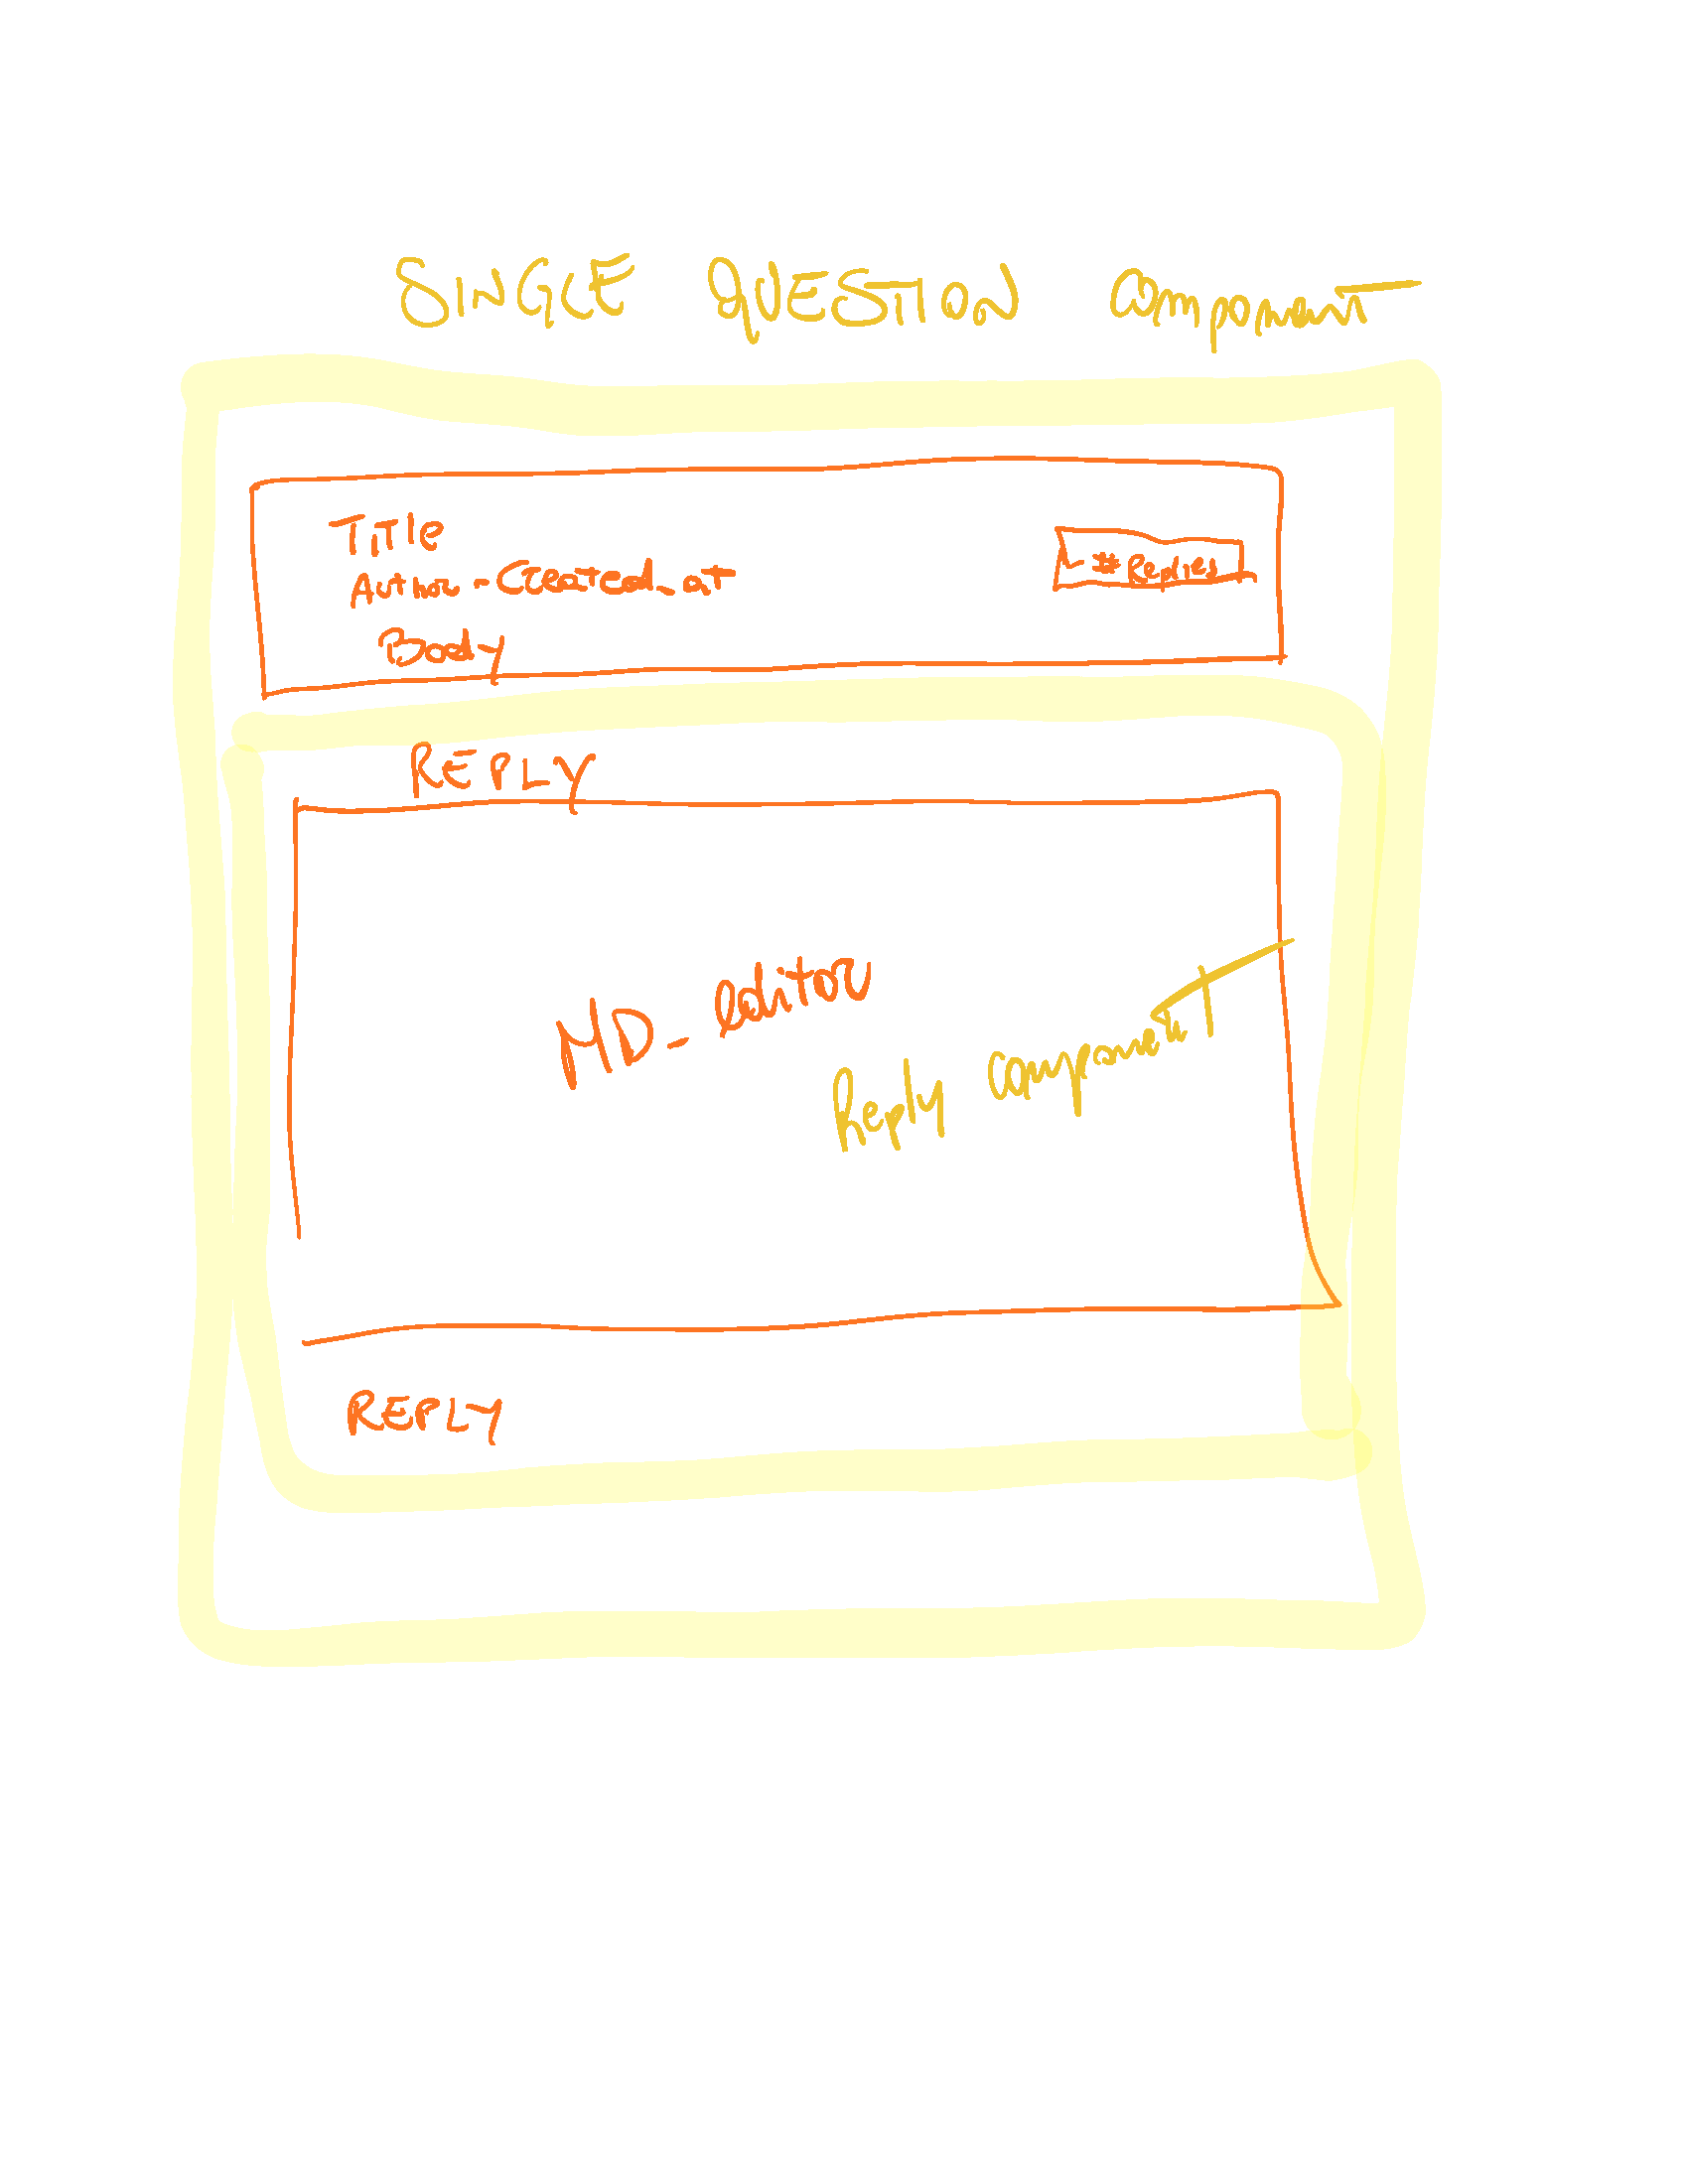 SINGLE QUESTION Component
Title
Author - Created_at
# Replies
Body
REPLY
MD_editor
Reply component
REPLY